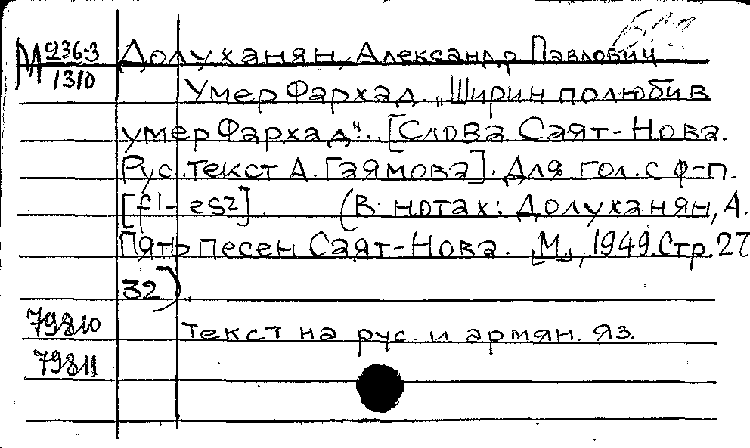 М 236-3
1310
Долуханян, Александр Павлович
Умер Фархад. „Ширин полюбив
умер Фархад". [Слова Саят-Нова.
Рус. текст А. Гаямова]. Для гол. с ф-п.
[f1- es2]. (В нотах: Долуханян, А.
Пять песен Саят-Нова. [М], 1949. Стр. 27
32).
79810 Текст на рус. и армян. яз.
79811